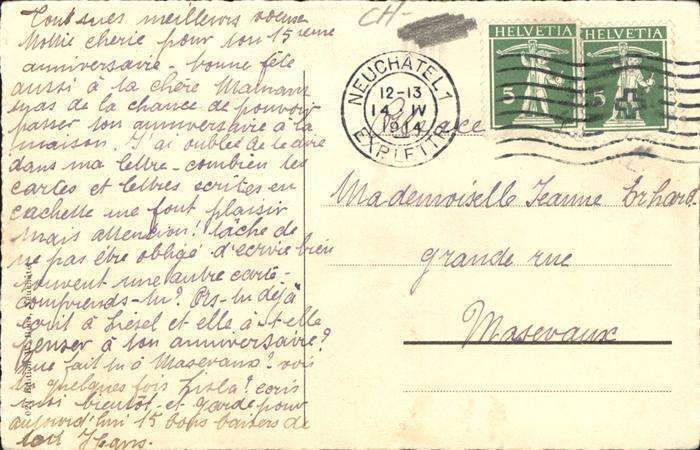 Tous mes meilleurs voeux
Mollie cherie pour ton 15ieme
anniversaire - bonne fête
aussi à la chère Maman
tu as de la chance de pouvoir
passer ton anniversaire à la
maison. J'ai oublié de te dire
dans ma lettre - combien tes
cartes et lettres écrites en
cachette me font plaisir
Mais attention! tâche de
ne pas être obligé d'écrire bien
souvent une autre carte -
comprends-tu? As-tu déjà
écrit à Liesel et elle a-t-elle
penser à ton anniversaire?
Que fait tu à Masevaux? vois
tu quelques fois Lisla? ecris
aussi bientôt - et garde pour
aujourd'hui 15 bons baisers de
ton Hans.
CH-
HELVETIA
5
HELVETIA
5
NEUCHÂTEL-1
12-13
14 IV
1914
Alsace
Mademoiselle Jeanne Erhard
grande rue
Masevaux